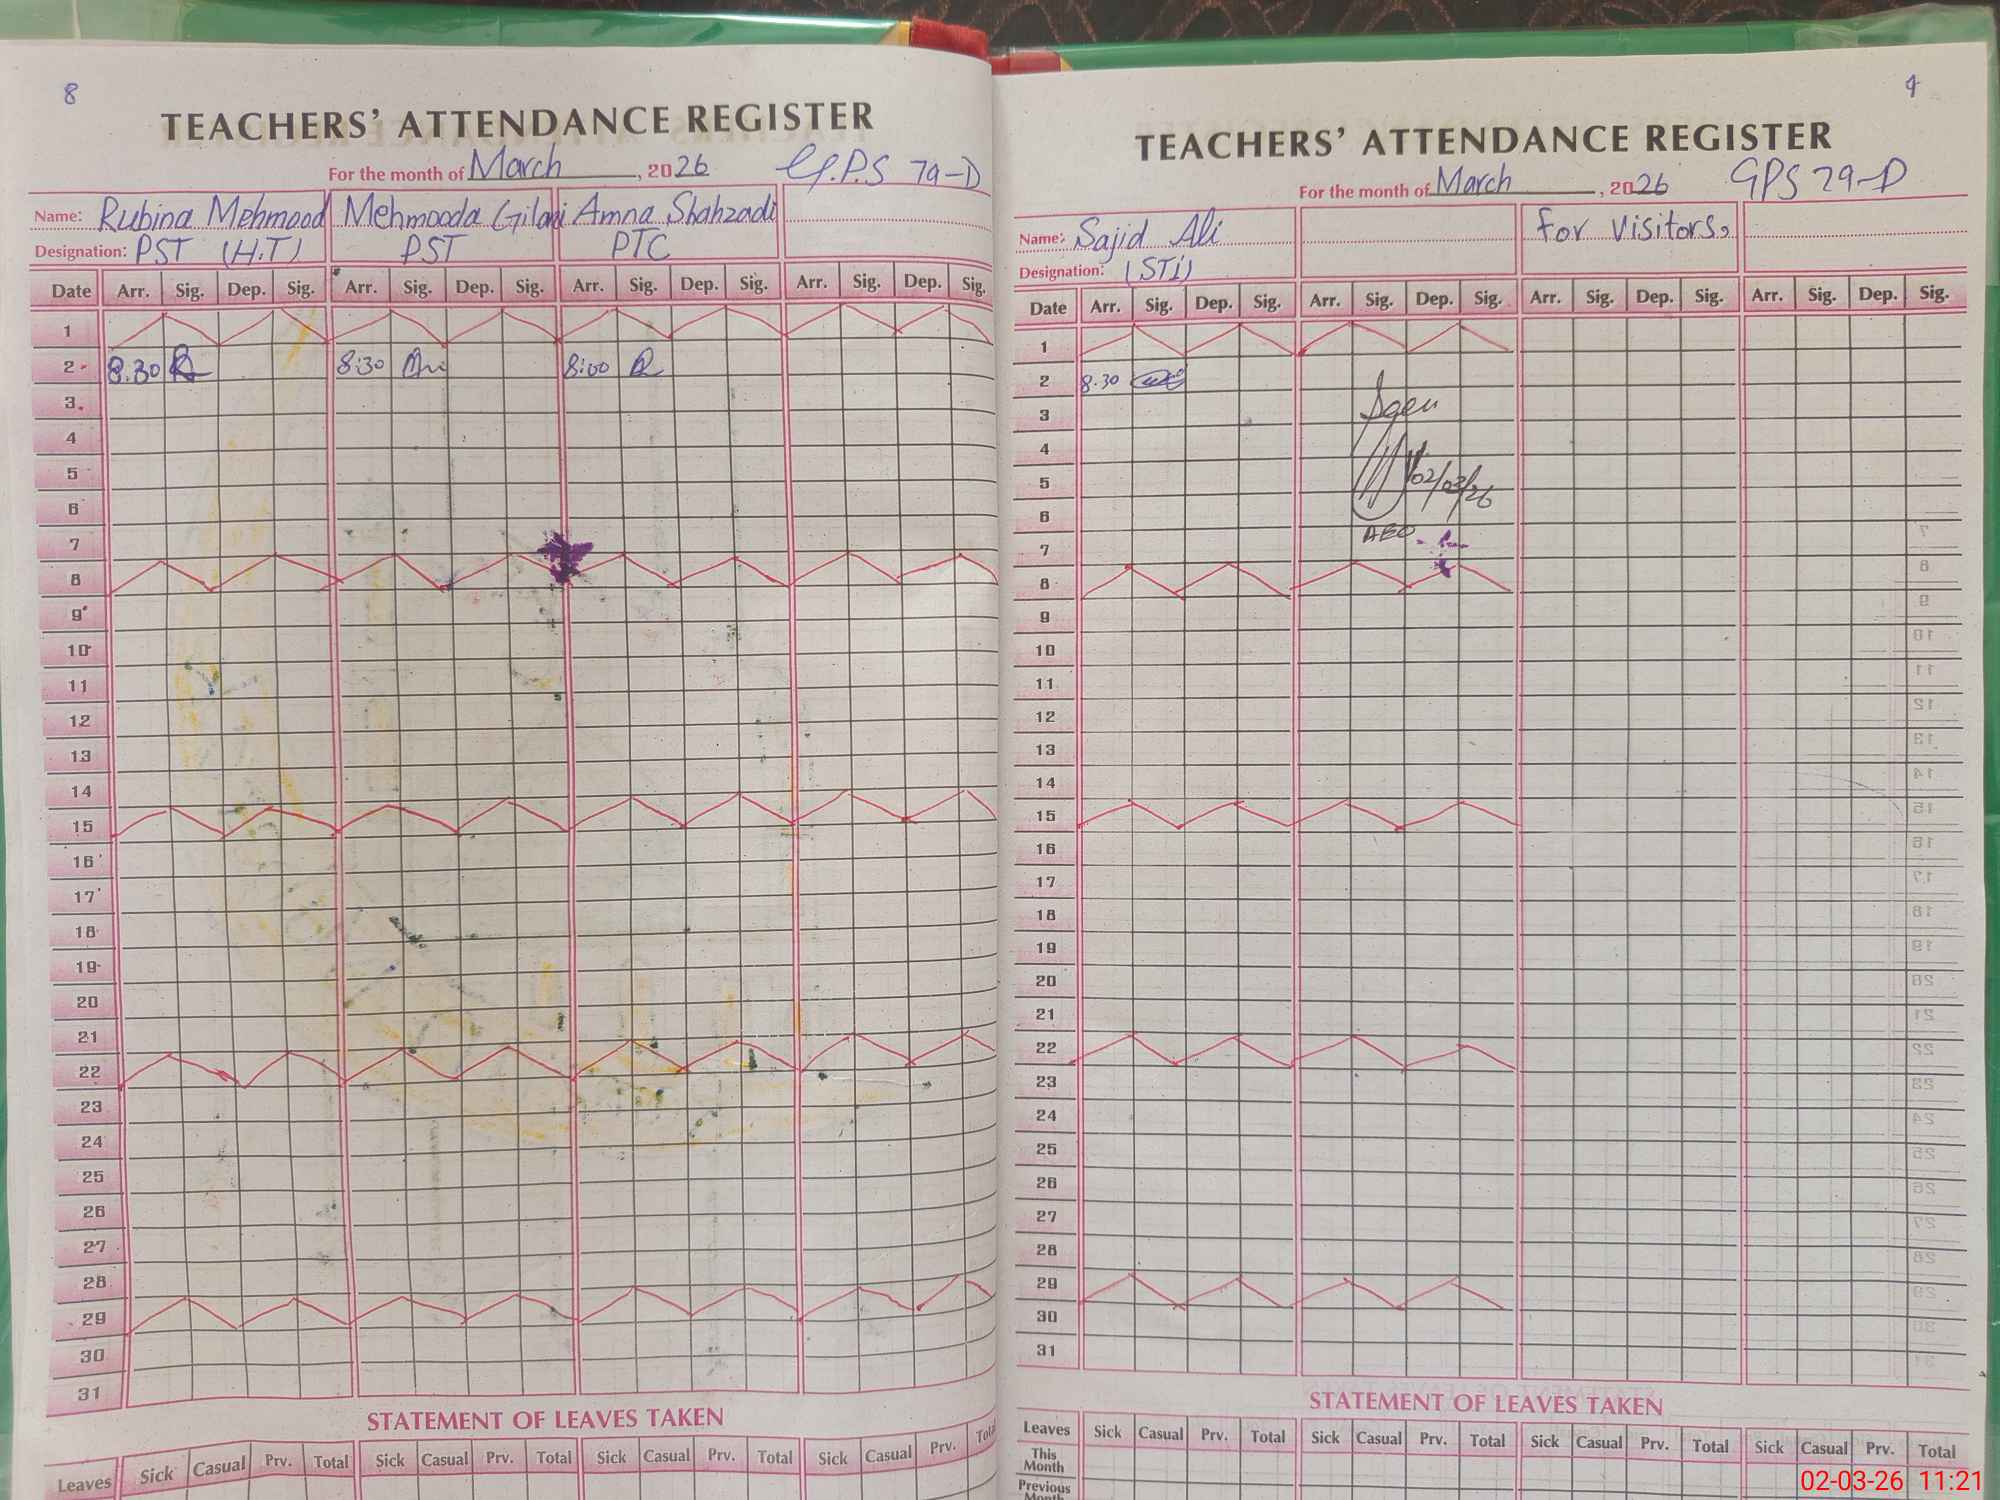 8
TEACHERS' ATTENDANCE REGISTER
For the month of March, 2026 G.P.S 79-D
Name: Rubina Mehmood Mehmooda Gilani Amna Shahzadi
Designation: PST (H.T) PST PTC
Date Arr. Sig. Dep. Sig. Arr. Sig. Dep. Sig. Arr. Sig. Dep. Sig. Arr. Sig. Dep. Sig.
1
2 8.30 8:30 8:00
3
4
5
6
7
8
9
10
11
12
13
14
15
16
17
18
19
20
21
22
23
24
25
26
27
28
29
30
31
STATEMENT OF LEAVES TAKEN
Leaves Sick Casual Prv. Total Sick Casual Prv. Total Sick Casual Prv. Total Sick Casual Prv. Total
9
TEACHERS' ATTENDANCE REGISTER
For the month of March, 2026 GPS 79-D
Name: Sajid Ali For Visitors.
Designation: (STI)
Date Arr. Sig. Dep. Sig. Arr. Sig. Dep. Sig. Arr. Sig. Dep. Sig. Arr. Sig. Dep. Sig.
1
2 8.30
3
4
5 02/03/26
6
7 AEO
8
9
10
11
12
13
14
15
16
17
18
19
20
21
22
23
24
25
26
27
28
29
30
31
STATEMENT OF LEAVES TAKEN
Leaves Sick Casual Prv. Total Sick Casual Prv. Total Sick Casual Prv. Total Sick Casual Prv. Total
This Month
Previous
02-03-26 11:21